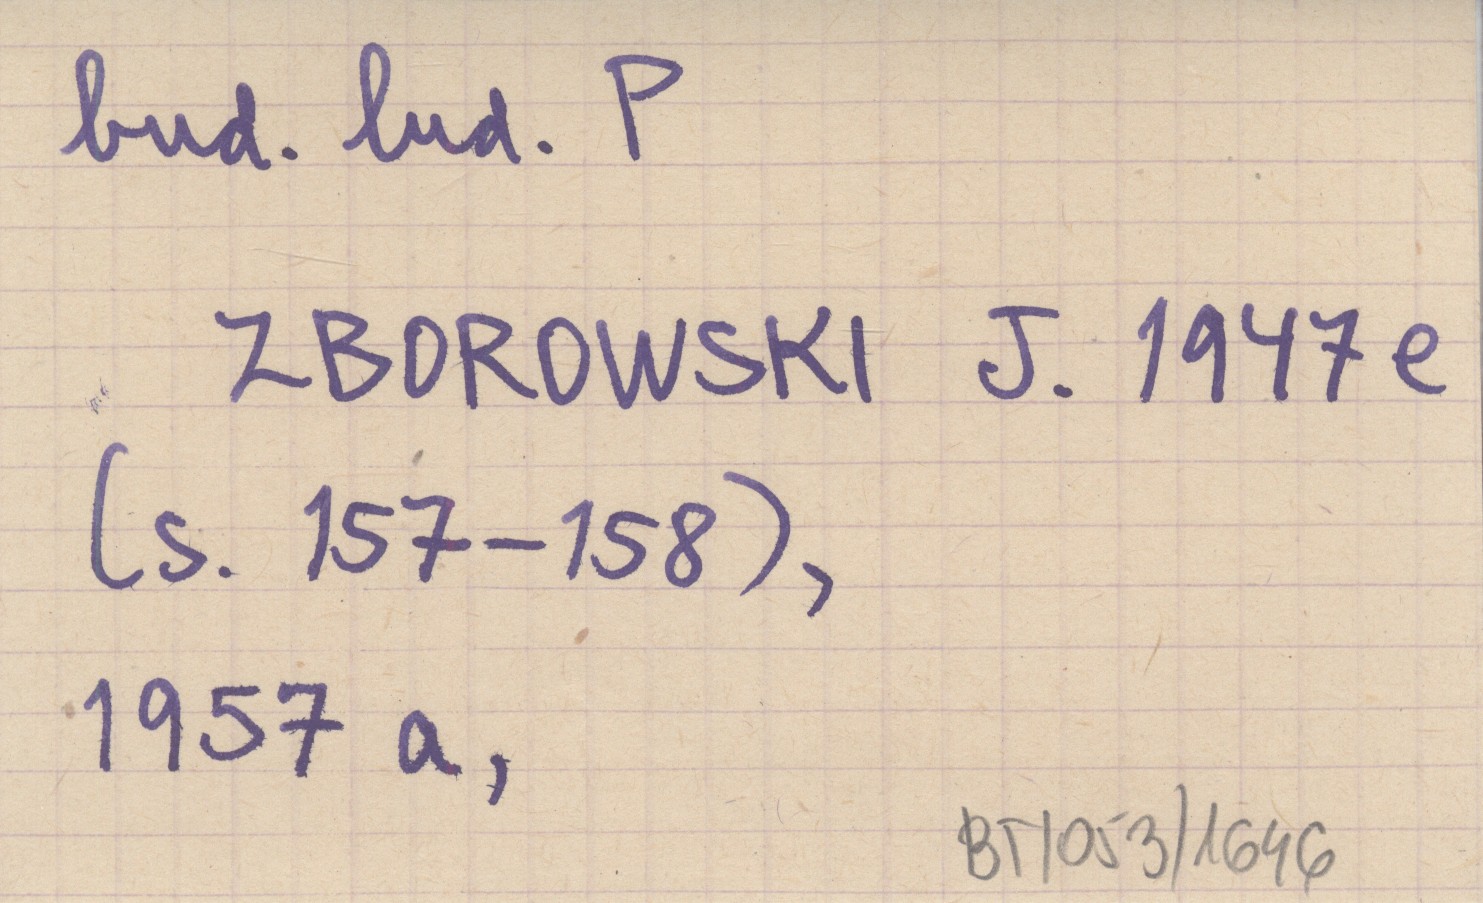 bud. lud. P
ZBOROWSKI J. 1947 e
(s. 157-158),
1957 a,
BT/053/1646